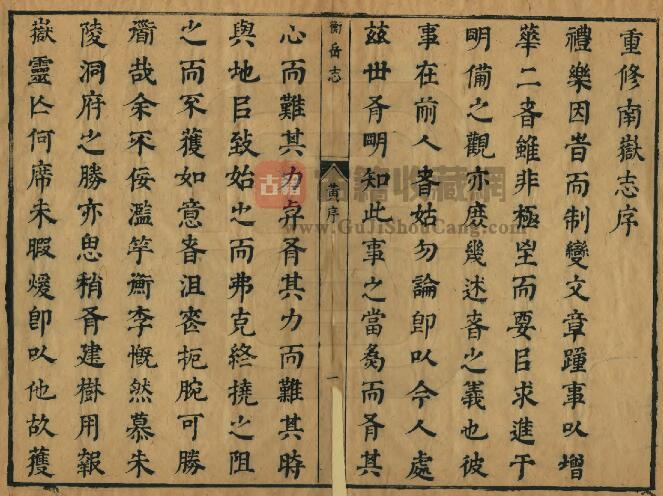 重修南嶽志序
禮樂因昔而制變文章踵事以增
華二者雖非極至而要㠯求進于
明備之觀亦庶幾述者之義也彼
事在前人者姑勿論即以今人處
兹世有明知此事之當爲而有其
衡岳志
黃序
一
心而難其力有其力而難其時
與地㠯致始之而弗克終撓之阻
之而不獲如意者沮喪扼腕可勝
衜哉余不佞濫竽衡李慨然慕朱
陵洞府之勝亦思稍有建樹用報
嶽靈亾何席未暇煖即以他故獲
古籍
古籍收藏网
www.GuJiShouCang.com